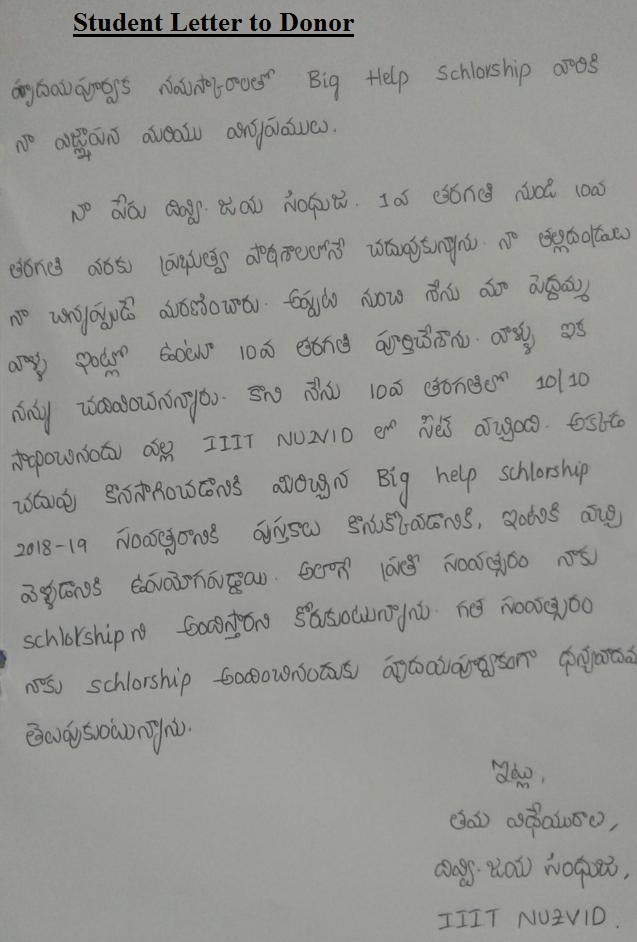 Student Letter to Donor
హృదయపూర్వక నమస్కారాలతో Big Help Schlorship వారికి
నా విజ్ఞాపన మరియు విన్నపములు.
నా పేరు దివ్వి. జయ సింధుజ. 1వ తరగతి నుండి 10వ
తరగతి వరకు ప్రభుత్వ పాఠశాలలోనే చదువుకున్నాను. నా తల్లిదండ్రులు
నా చిన్నప్పుడే మరణించారు. అప్పటి నుంచి నేను మా పెద్దమ్మ
వాళ్ళ ఇంట్లో ఉంటూ 10వ తరగతి పూర్తిచేశాను. వాళ్ళు ఇక
నన్ను చదివించనన్నారు. కాని నేను 10వ తరగతిలో 10/10
సాధించినందు వల్ల IIIT NUZVID లో సీట్ వచ్చింది. అక్కడ
చదువు కొనసాగించడానికి మించిన Big help schlorship
2018-19 సంవత్సరానికి పుస్తకాలు కొనుక్కోవడానికి, ఇంటికి వచ్చి
వెళ్ళడానికి ఉపయోగపడ్డాయి. అలాగే ప్రతీ సంవత్సరం నాకు
schlorship ని అందిస్తారని కోరుకుంటున్నాను. గత సంవత్సరం
నాకు schlorship అందించినందుకు హృదయపూర్వకంగా ధన్యవాదము
తెలుపుకుంటున్నాను.
ఇట్లు,
తమ విధేయురాలు,
దివ్వి. జయ సింధుజ,
IIIT NUZVID.